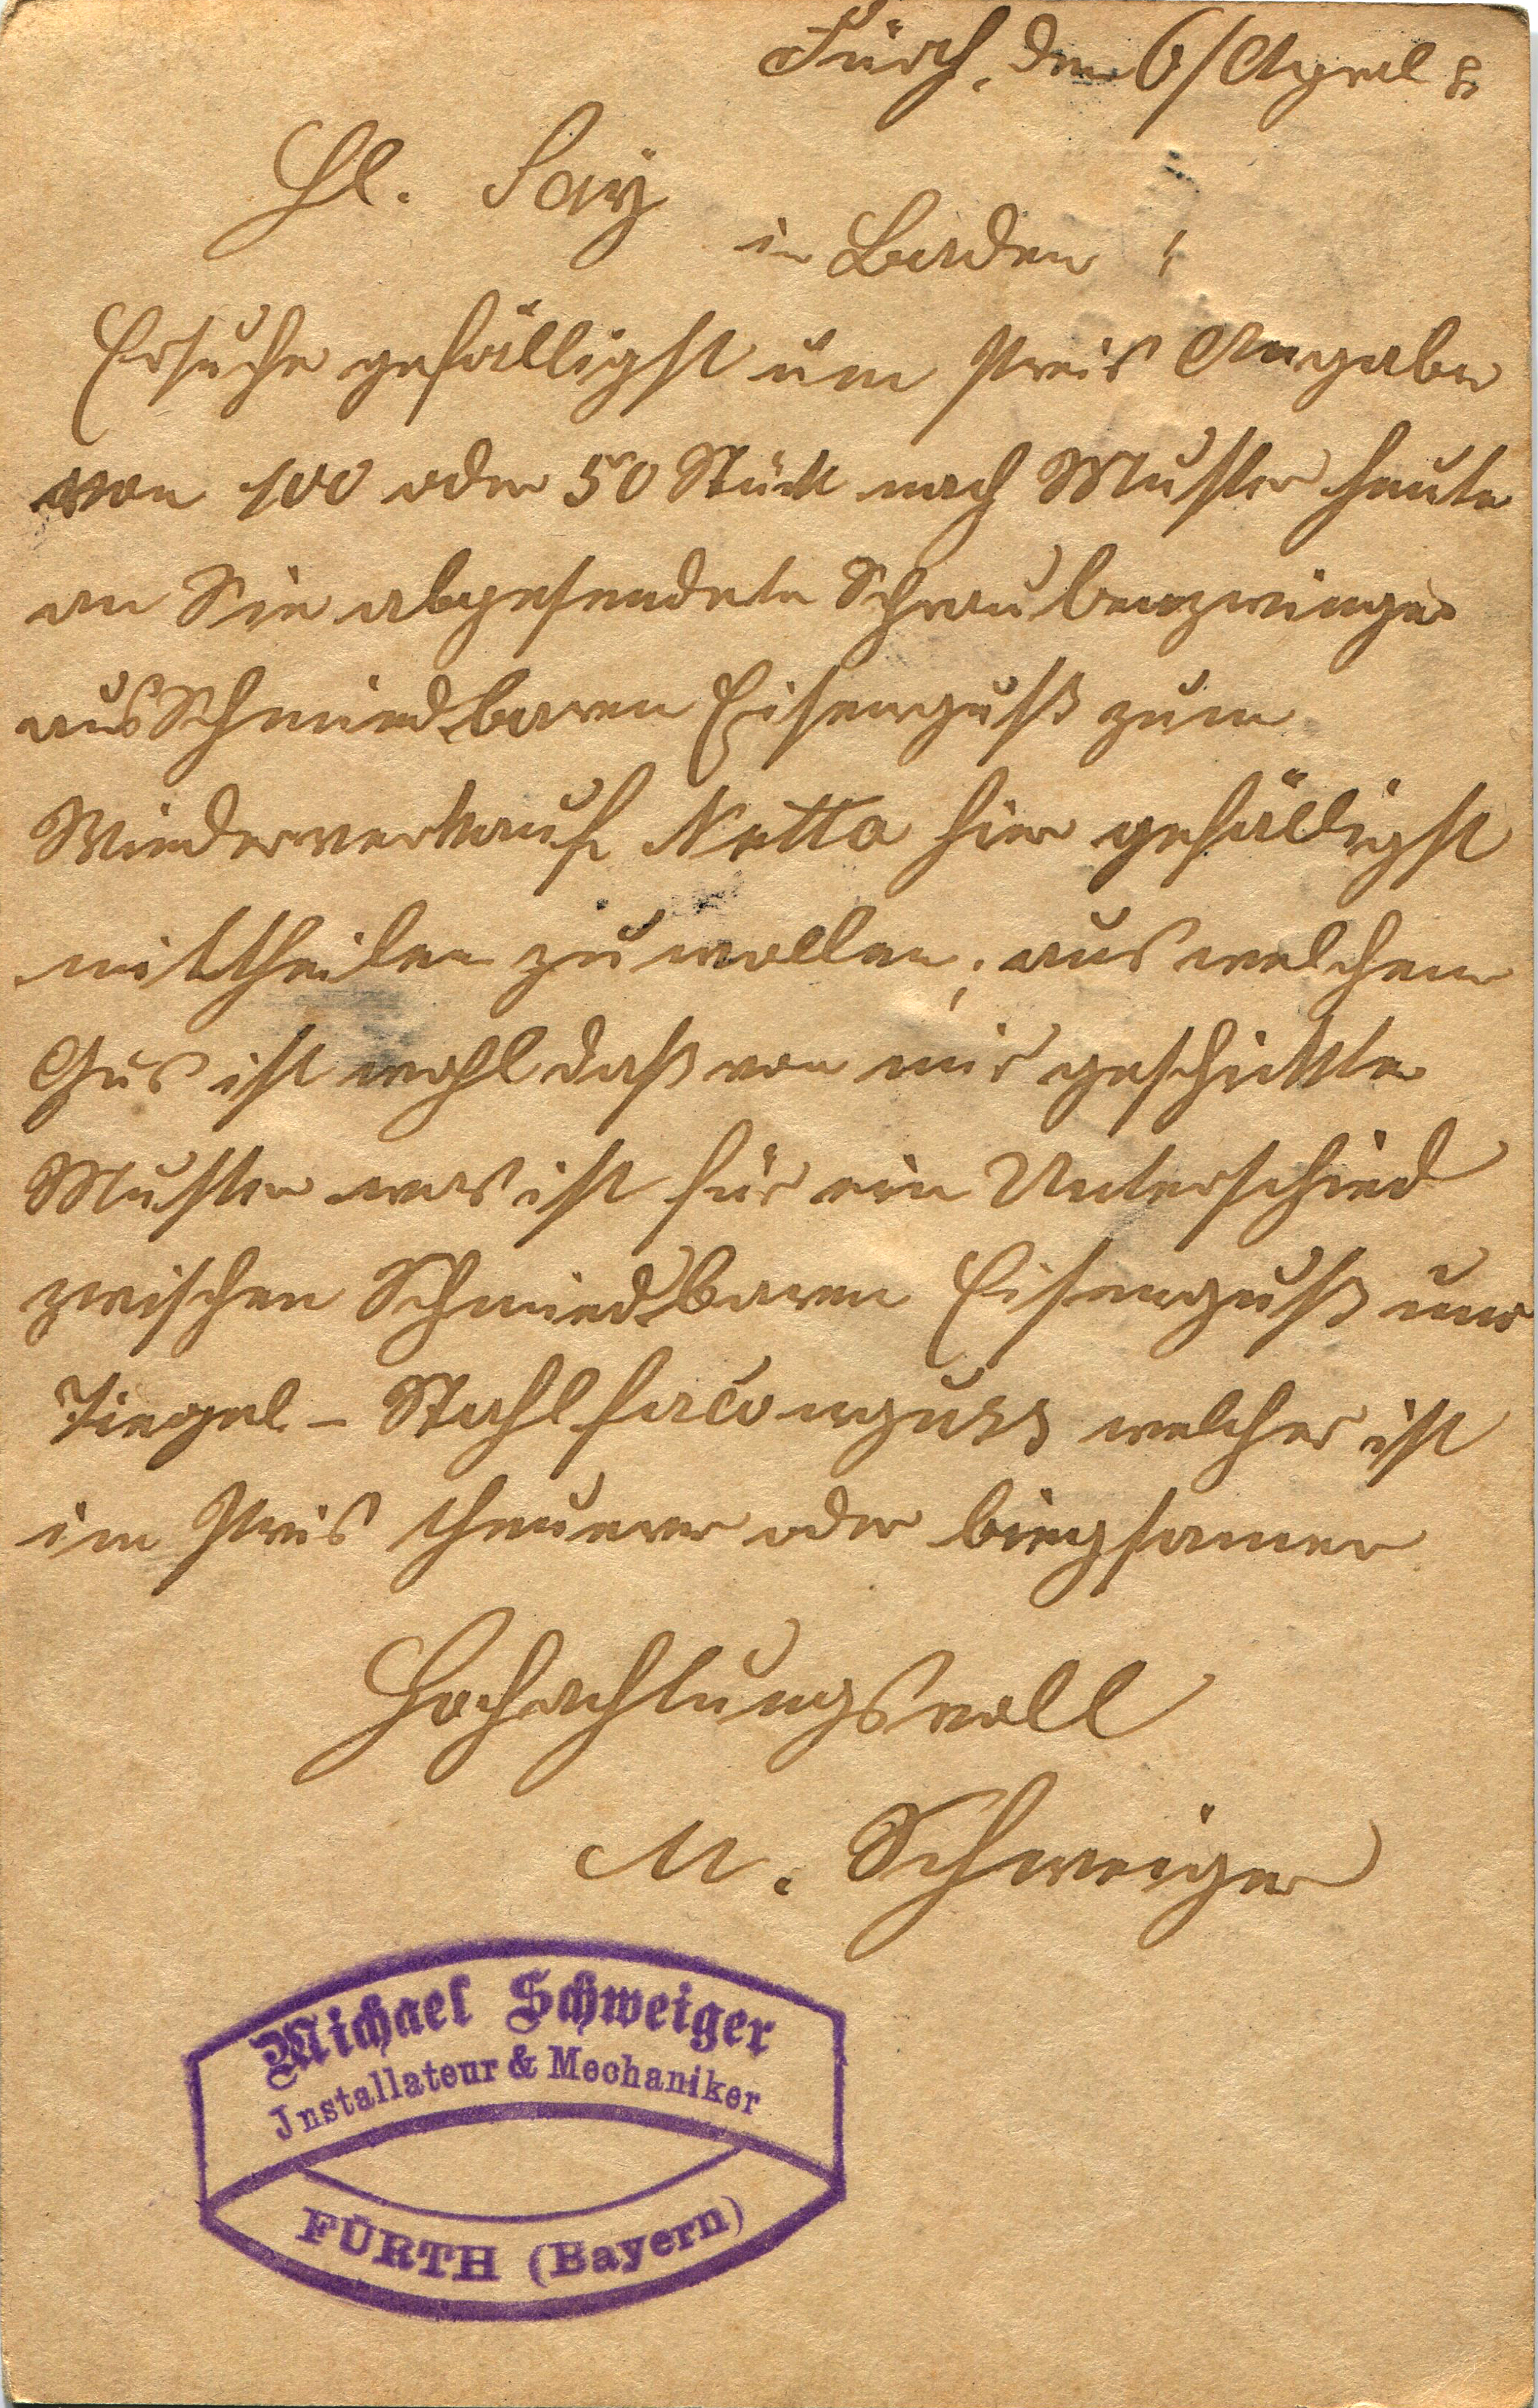 Fürth, den 6/April
Hl.
in Baden !
Ersuche gefälligst um Preis Angabe
von 100 oder 50 Stück nach Muster heute
an Sie abgesendete Schraubenzwinge
aus Schmiedbaren Eisenguß zum
Wiederverkauf Netto hier gefälligst
mittheilen zu wollen, aus welchem
Gus ist wohl daß von mir geschickte
Muster was ist für ein Unterschied
zwischen Schmiedbaren Eisenguß und
Tiegel-Stahlfaconguss welcher ist
im Preis theuerer oder biegsamer
Hochachtungsvoll
M. Schweiger
Michael Schweiger
Installateur & Mechaniker
FÜRTH (Bayern)